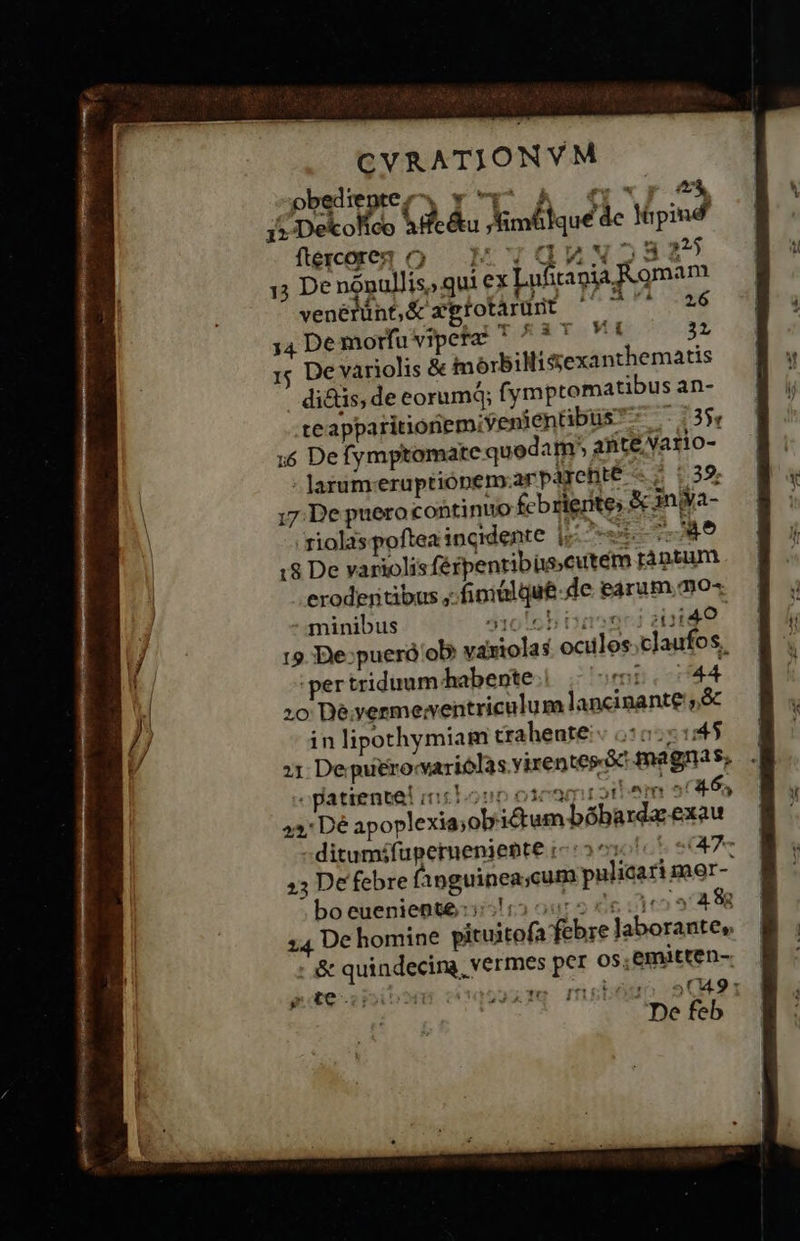 CVRATIONVM
obediente. 23
12 De kolico affectu ſimúlque de lupino
ſtercore. 25
13 De nónullis, qui ex Luſitania Romam
venerũnt, & ægrotârunt 26
14 De morſu viperæ 32
15 De variolis & morbillis exanthematis
dictis, de eorumq́; ſymptomatibus an-
te apparitionem, venientibus 35
16 De ſymptomate quodam, ante vario-
larum eruptionem apparente 39
17 De puero continuo febriente, & in va-
riolas poſtea incidente 40
18 De variolis ſerpentibus, cutem tantum
erodentibus, ſimúlque de earum no-
minibus 40
19 De puerò ob variolas oculos clauſos,
per triduum habente. 44
20 De verme, ventriculum lancinante, &
in lipothymiam trahente. 45
21 De puero variolas virentes & magnas,
patiente. 46
22 De apoplexia, ob ictum bõbardæ exau
ditum, ſuperueniente 47
23 De febre ſanguinea, cum pulicari mor-
bo eueniente. 48
24 De homine pituitoſa febre laborante,
& quindecim vermes per os, emitten-
te 49
De feb